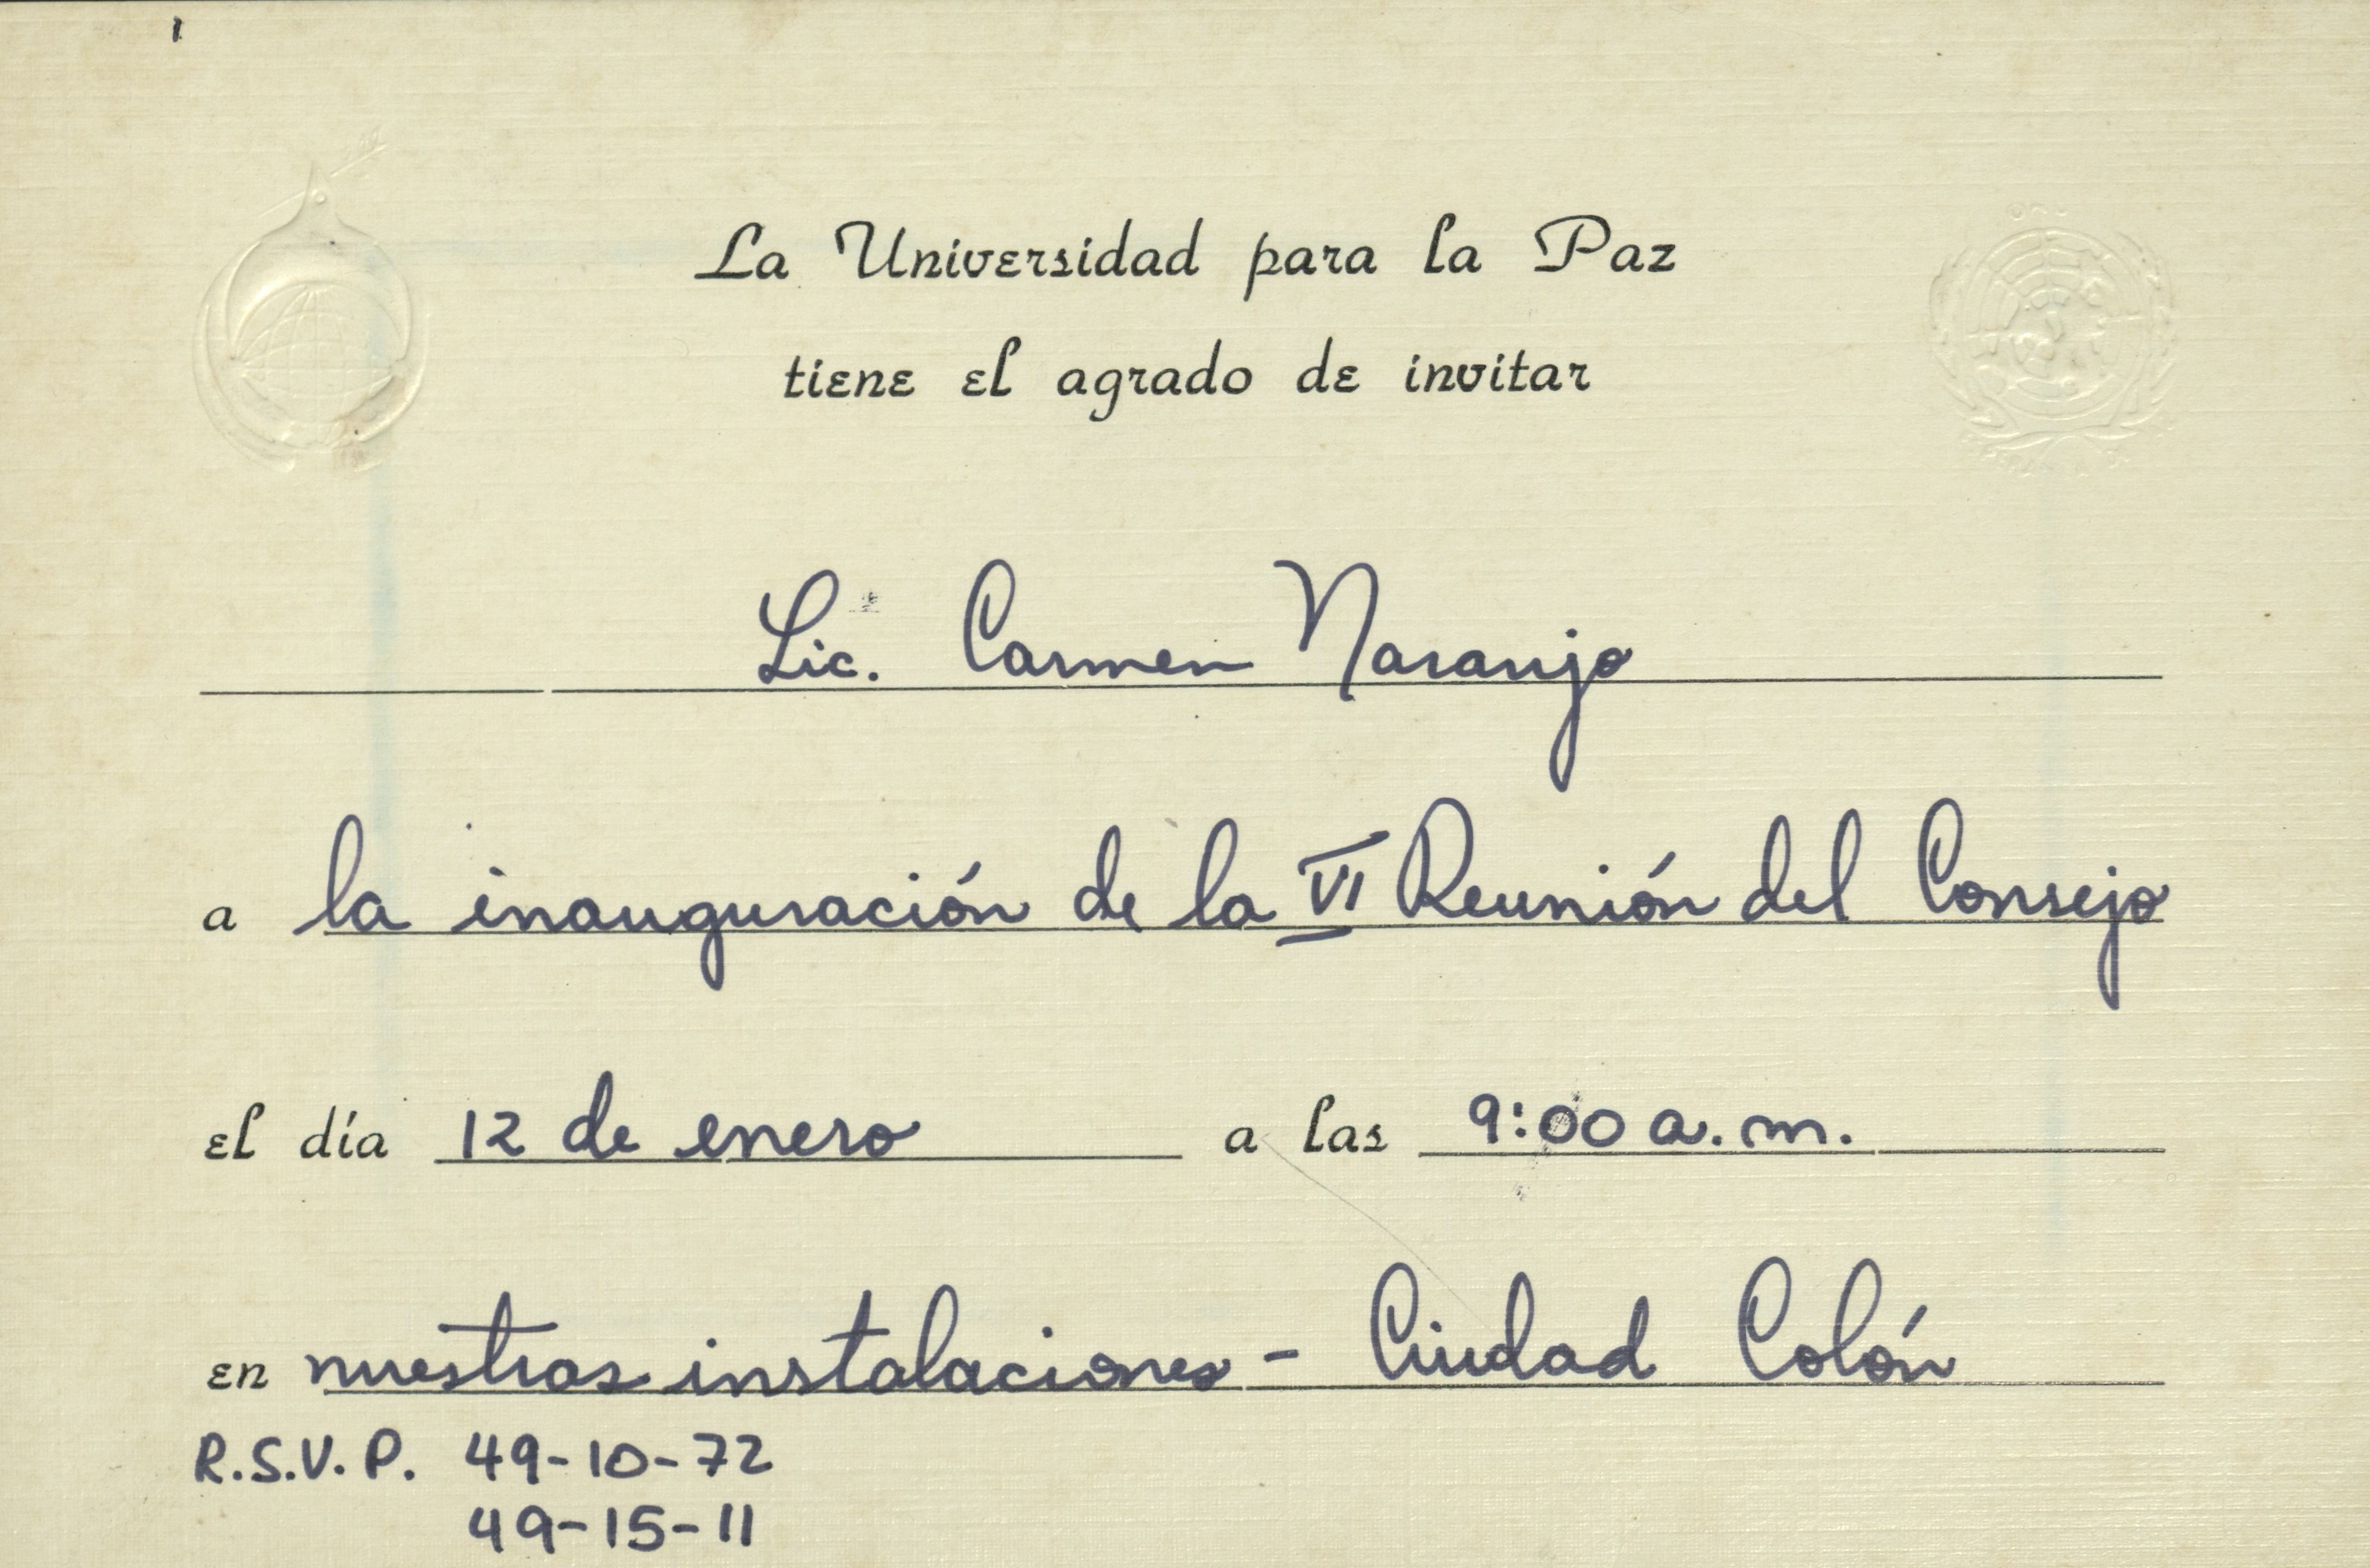 La Universidad para la Paz
tiene el agrado de invitar
Lic. Carmen Naranjo
a la inauguración de la VI Reunión del Consejo
el día 12 de enero a las 9:00 a.m.
en nuestras instalaciones - Ciudad Colón
R.S.V.P. 49-10-72
49-15-11